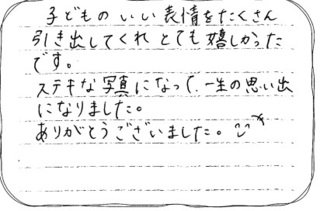 子どものいい表情をたくさん
引き出してくれ とても嬉しかった
です。
ステキな写真になって、一生の思い出
になりました。
ありがとうございました。